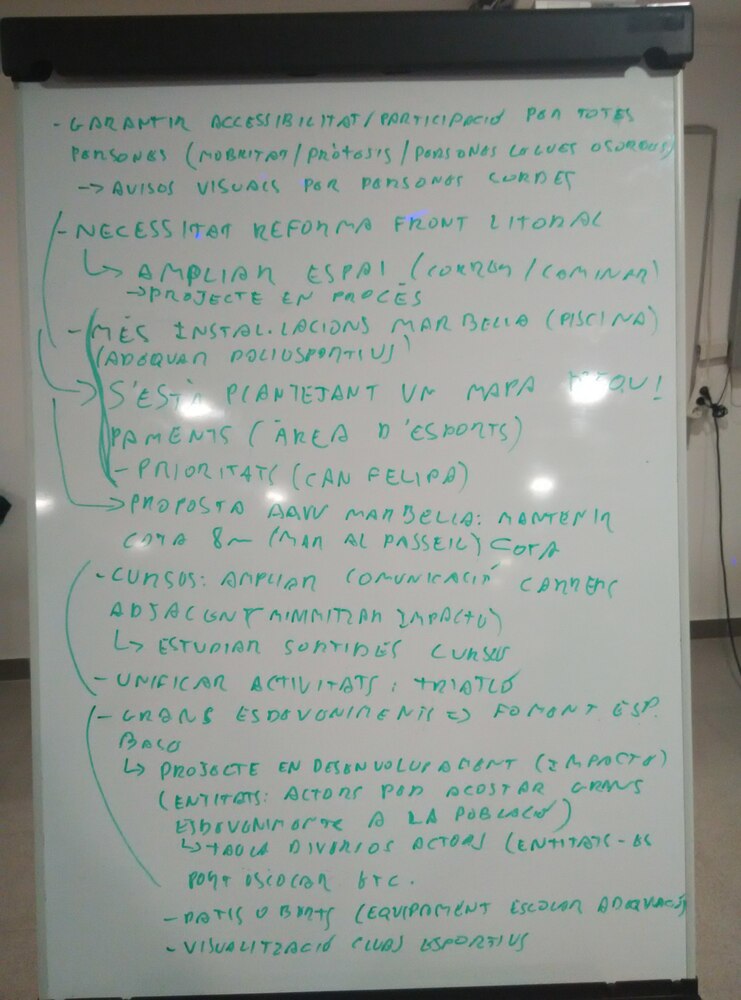 - GARANTIR ACCESSIBILITAT/PARTICIPACIÓ PER TOTES
PERSONES (MOBILITAT/PRÒTESIS/PERSONES CEGUES O SORDES)
-> AVISOS VISUALS PER PERSONES SORDES
- NECESSITAT REFORMA FRONT LITORAL
↳ AMPLIAR ESPAI (CORRER/CAMINAR)
→ PROJECTE EN PROCÉS
- MÉS INSTAL.LACIONS MARBELLA (PISCINA)
(ADEQUAR POLIESPORTIUS)
→ S'ESTÀ PLANTEJANT UN MAPA D'EQUI
PAMENTS (ÀREA D'ESPORTS)
- PRIORITATS (CAN FELIPA)
→ PROPOSTA AAVV MARBELLA: MANTENIR
COTA 8m (MAR AL PASSEIG) COTA
- CURSES: AMPLIAR COMUNICACIÓ CARRERS
ADJACENT (MINIMITZAR IMPACTE)
↳ ESTUDIAR SORTIDES CURSES
- UNIFICAR ACTIVITATS: TRIATLÓ
- GRANS ESDEVENIMENTS => FOMENT ESP.
BASE
↳ PROJECTE EN DESENVOLUPAMENT (IMPACTE)
(ENTITATS: ACTORS PER ACOSTAR GRANS
ESDEVENIMENTS A LA POBLACIÓ)
↳ TAULA DIVERSOS ACTORS (ENTITATS - ES
PORT ESCOLAR ETC.
- PATIS OBERTS (EQUIPAMENT ESCOLAR ADEQUACIÓ)
- VISUALITZACIÓ CLUBS ESPORTIUS